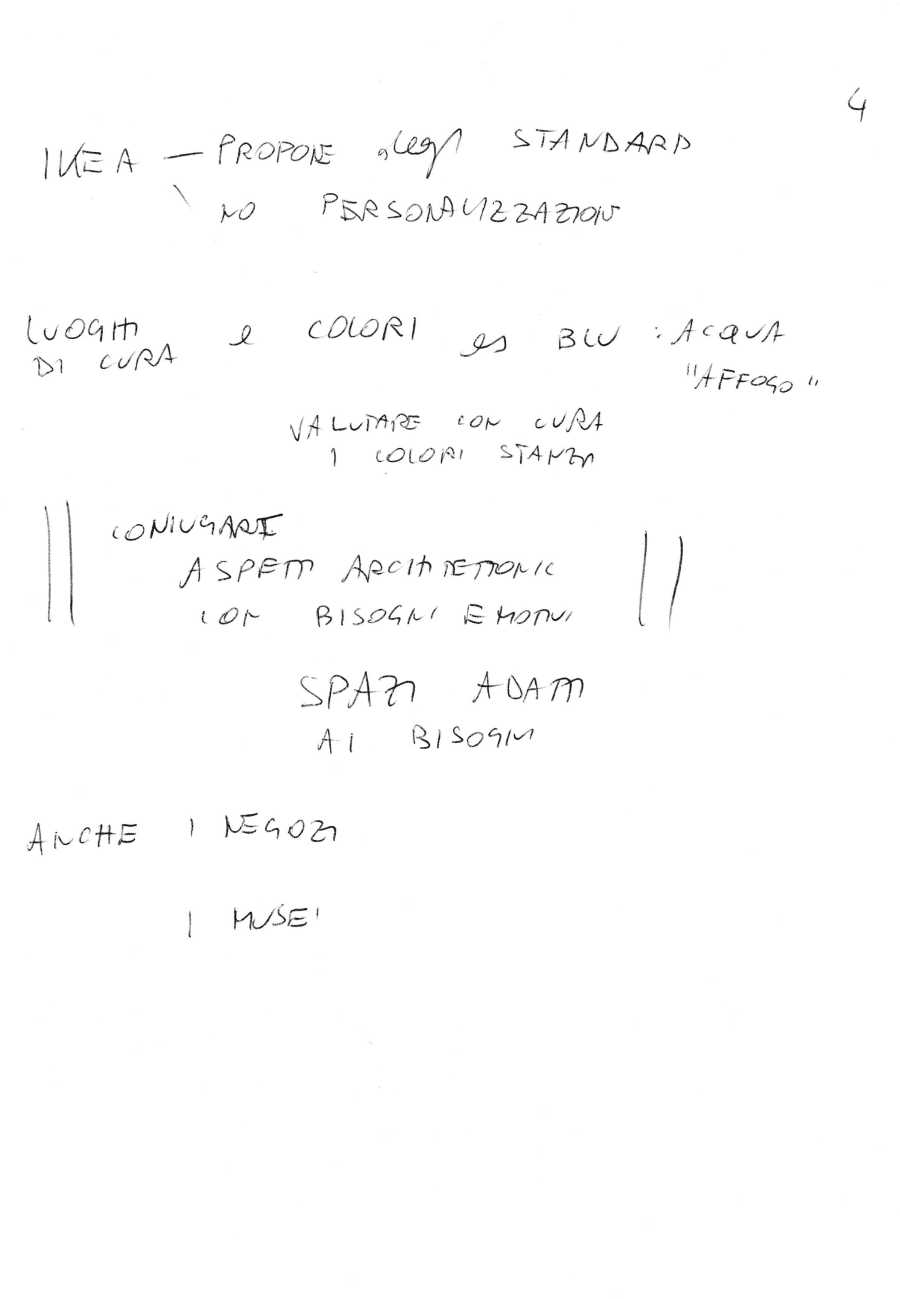 4
IKEA — PROPONE degli STANDARD
NO PERSONALIZZAZIONI
LUOGHI
DI CURA e COLORI es BLU : ACQUA
"AFFOGO"
VALUTARE CON CURA
I COLORI STANZA
CONIUGARE
ASPETTI ARCHITETTONICI
CON BISOGNI EMOTIVI
SPAZI ADATTI
AI BISOGNI
ANCHE I NEGOZI
I MUSEI